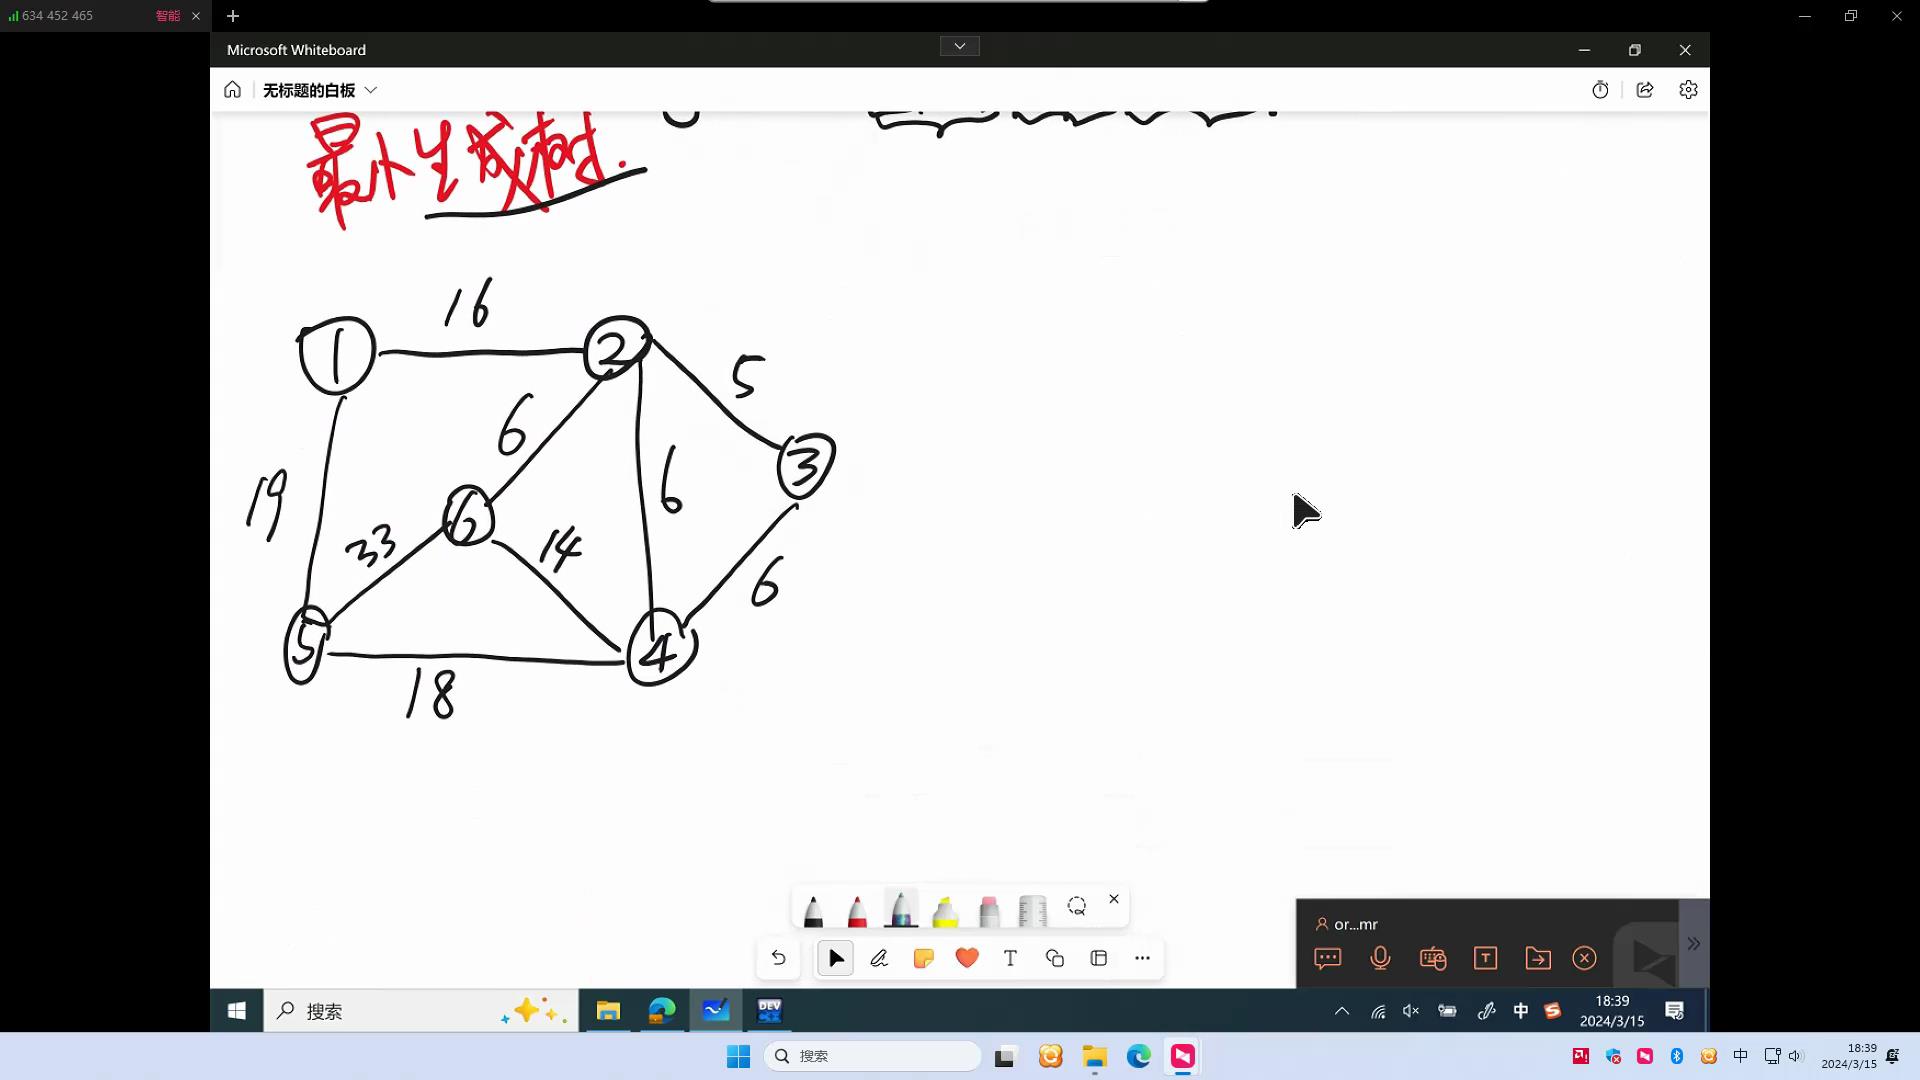 634 452 465
智能
Microsoft Whiteboard
无标题的白板
最小生成树.
16
1
2
5
6
3
19
6
6
33
14
6
5
4
18
T
or...mr
T
搜索
DEV
中
18:39
2024/3/15
搜索
中
18:39
2024/3/15